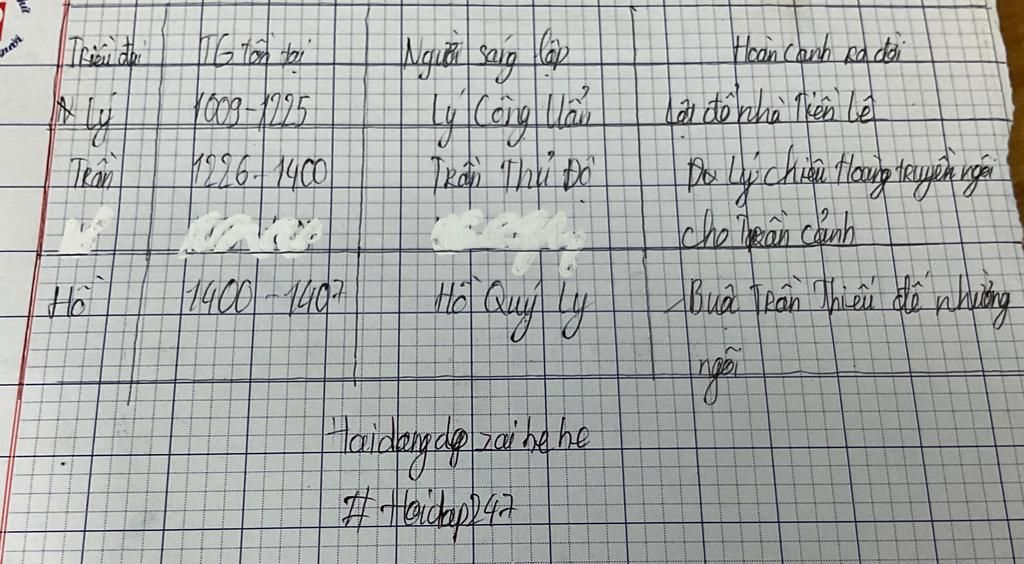 Triều đại TG tồn tại Người sáng lập Hoàn cảnh ra đời
Lý 1009-1225 Lý Công Uẩn Lật đổ nhà Tiền Lê
Trần 1226-1400 Trần Thủ Độ Do Lý chiêu Hoàng truyền ngôi
cho Trần cảnh
Hồ 1400-1407 Hồ Quý Ly Buộc Trần Thiếu đế nhường
ngôi
Haidangdep zai he he
# Hoidap247